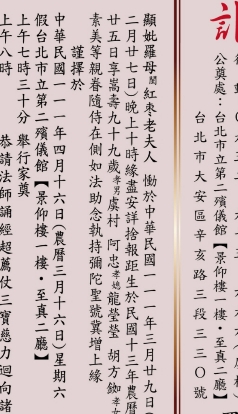 訃
公奠處:台北市立第二殯儀館【景仰樓一樓•至真二廳】
台北市大安區辛亥路三段三三○號
顯妣羅母閩紅棗老夫人 慟於中華民國一一一年三月廿九日
二月廿七日)晚上十時緣盡安詳捨報距生於民國十三年農曆
廿五日享嵩壽九十九歲孝男虞村 阿忠孝媳龍瑩瑩 胡方銣孝女
素美等親眷隨侍在側如法助念執持彌陀聖號冀增上緣
謹擇於
中華民國一一一年四月十六日(農曆三月十六日)星期六
假台北市立第二殯儀館【景仰樓一樓•至真二廳】
上午七時三十分 舉行家奠
上午八時 恭請法師誦經超薦仗三寶慈力迴向諸